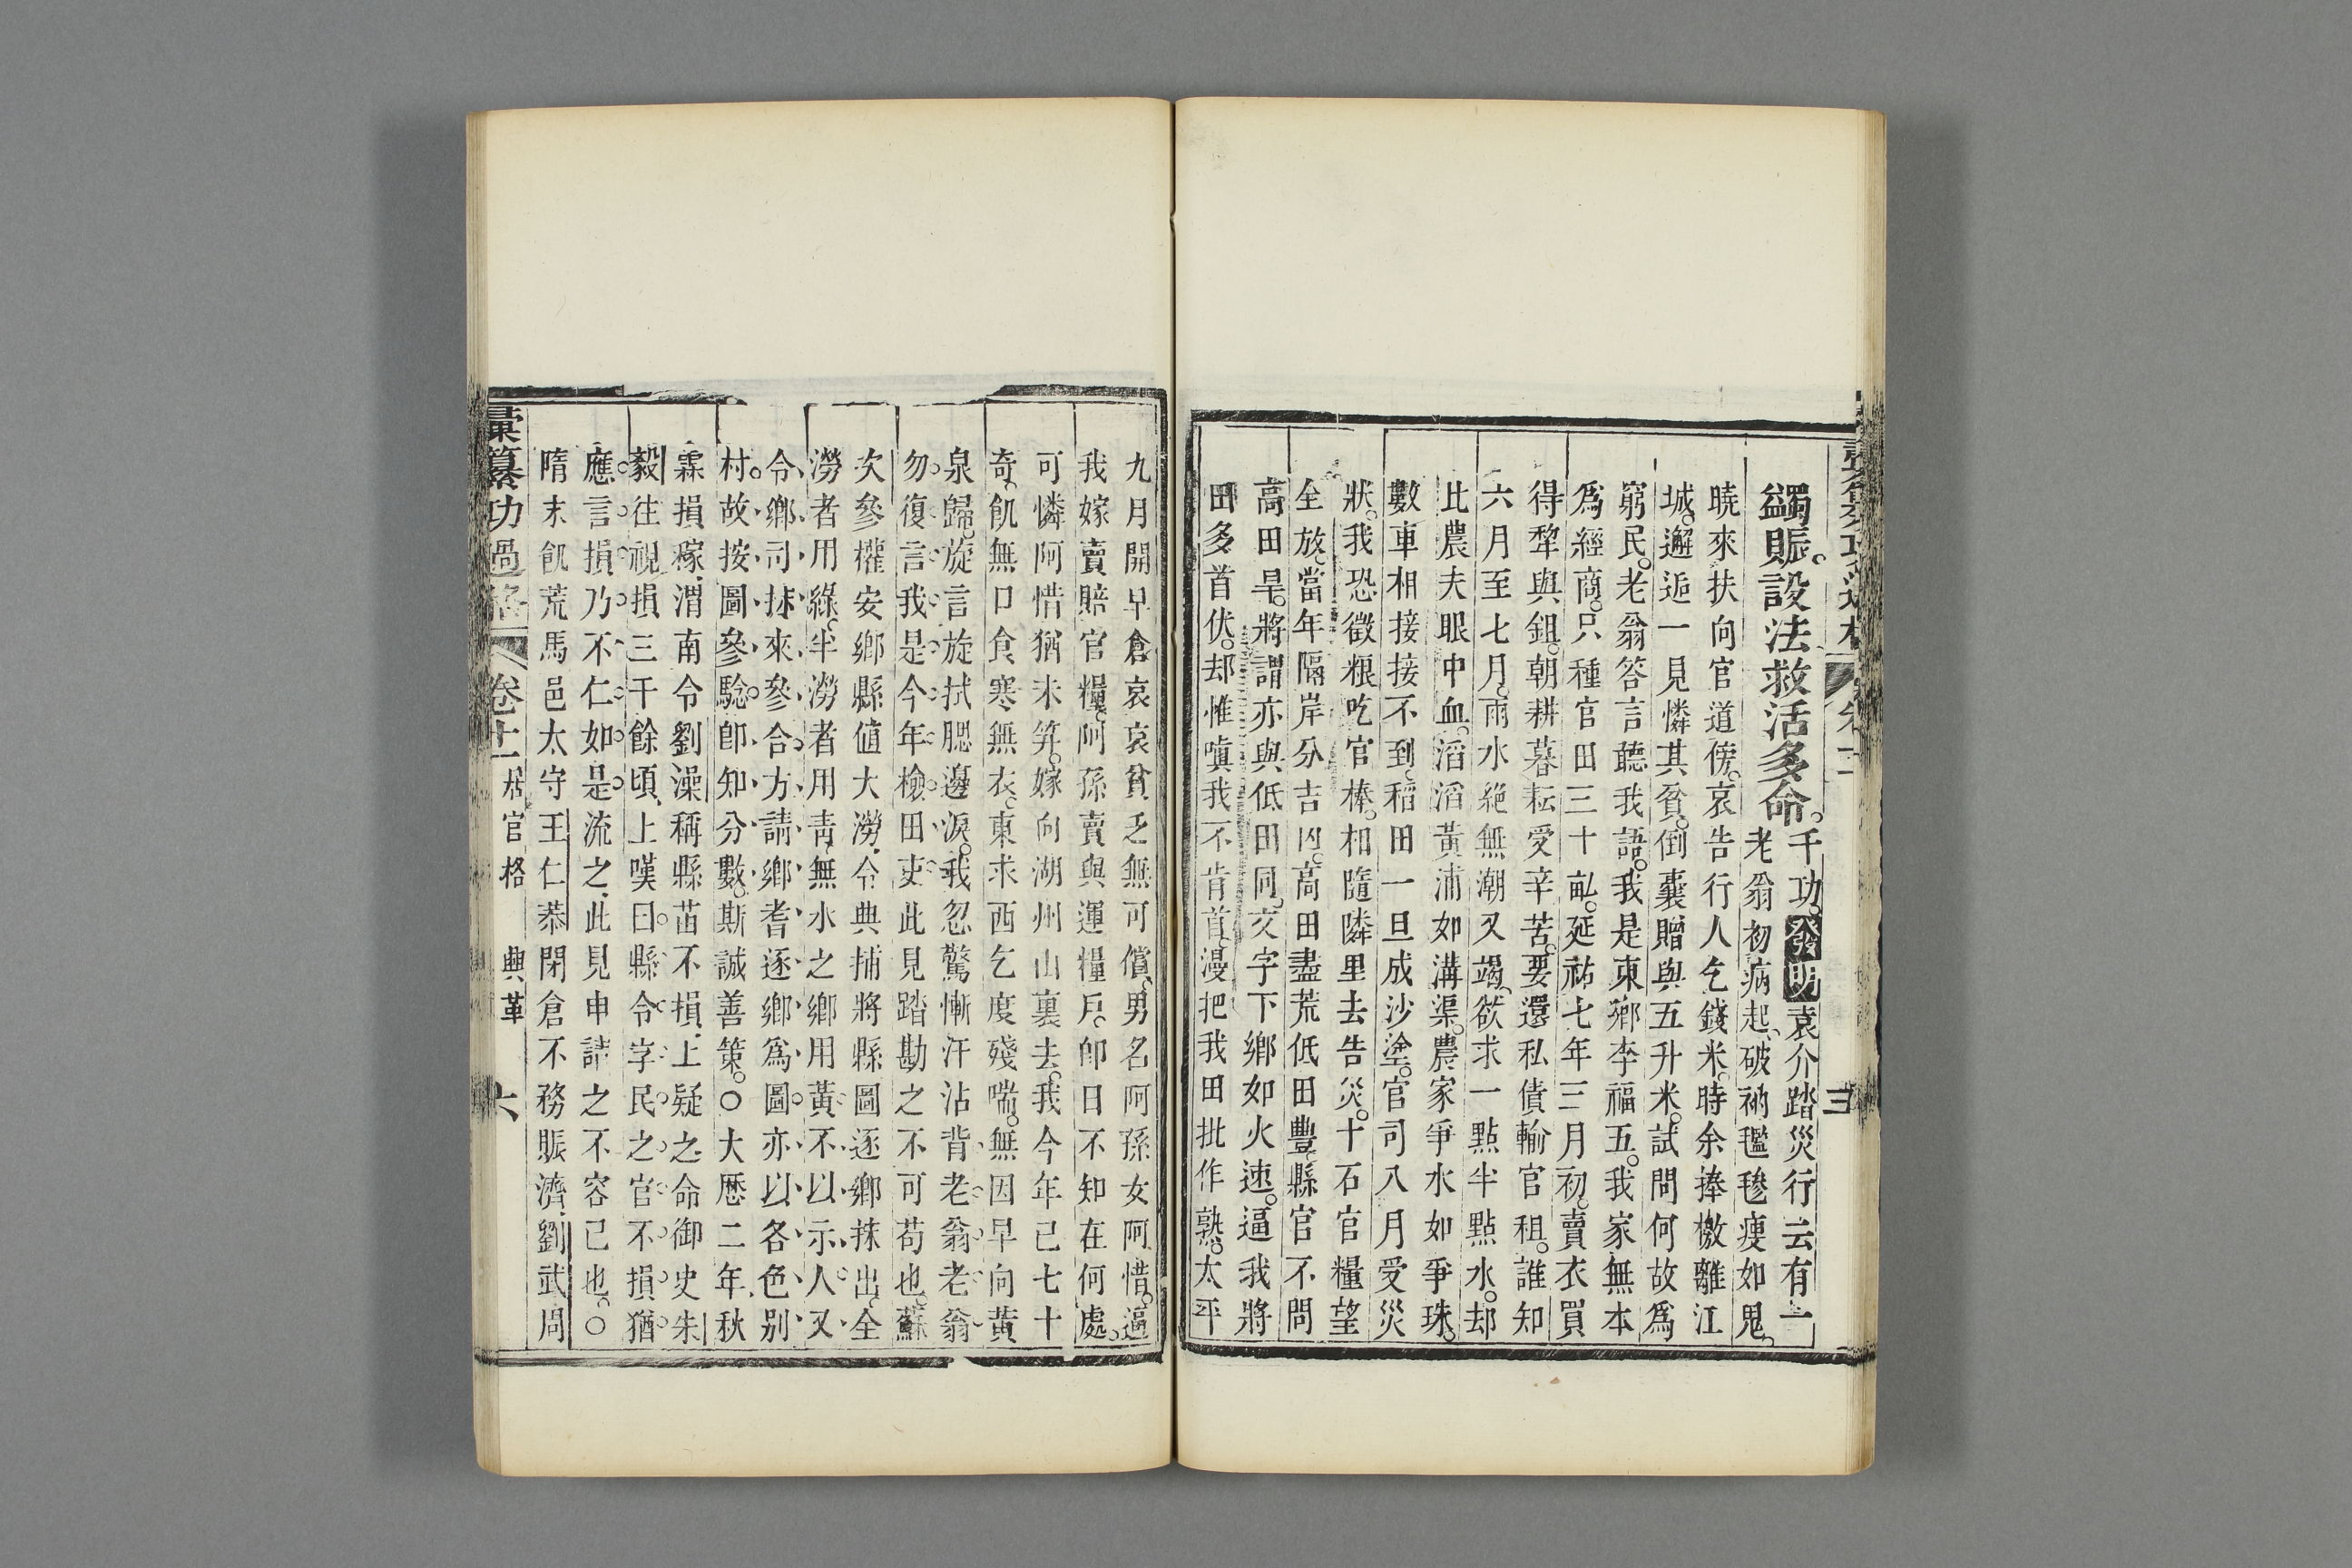 蠲賑。設法救活多命。千功。發明袁介踏災行云有一
老翁初病起、破衲𣰦毿瘦如鬼、
曉來扶向官道傍。哀告行人乞錢米。時余捧檄離江
城。邂逅一見憐其貧。倒囊贈與五升米。試問何故爲
窮民。老翁答言聽我語。我是東鄉李福五。我家無本
爲經商。只種官田三十畝。延祐七年三月初。賣衣買
得犂與鉏。朝耕暮耘受辛苦。要還私債輸官租。誰知
六月至七月、雨水絶無潮又竭、欲求一點半點水。却
比農夫眼中血。滔滔黃浦如溝渠。農家爭水如爭珠。
數車相接接不到、稻田一旦成沙塗。官司八月受災
狀。我恐徵粮吃官棒。相隨隣里去告災。十石官糧望
全放、當年隔岸分吉凶。高田盡荒低田豐、縣官不問
高田旱。將謂亦與低田同。文字下鄉如火速。逼我將
田多首伏。却惟嗔我不肯首、漫把我田批作熟。太平
九月開早倉、哀哀貧乏無可償、男名阿孫女阿惜。逼
我嫁賣賠官糧、阿孫賣與運糧戶。卽日不知在何處。
可憐阿惜猶未笄。嫁向湖州山裏去。我今年已七十
奇、飢無口食寒無衣、東求西乞度殘喘。無因早向黃
泉歸。旋言旋拭腮邊淚。我忽驚慚汗沾背老翁老翁
勿復言我是今年檢田吏此見踏勘之不可苟也。蘇
次參權安鄉縣値大澇、令典捕將縣圖逐鄉抹出、全
澇者用綠、半澇者用青、無水之鄉用黃不以示人又
令鄉司抹來參合方請鄉耆逐鄉爲圖亦以各色别
村故按圖參騐卽知分數、斯誠善策。○大歷二年秋
霖損稼、渭南令劉澡稱縣苗不損、上疑之命御史朱
毅往視損三千餘頃、上嘆曰縣令字民之官不損猶
應言損乃不仁如是流之、此見申請之不容已也。○
隋末飢荒馬邑太守王仁恭閉倉不務賑濟、劉武周
彙纂功過格 卷十一 居官格 興革 六